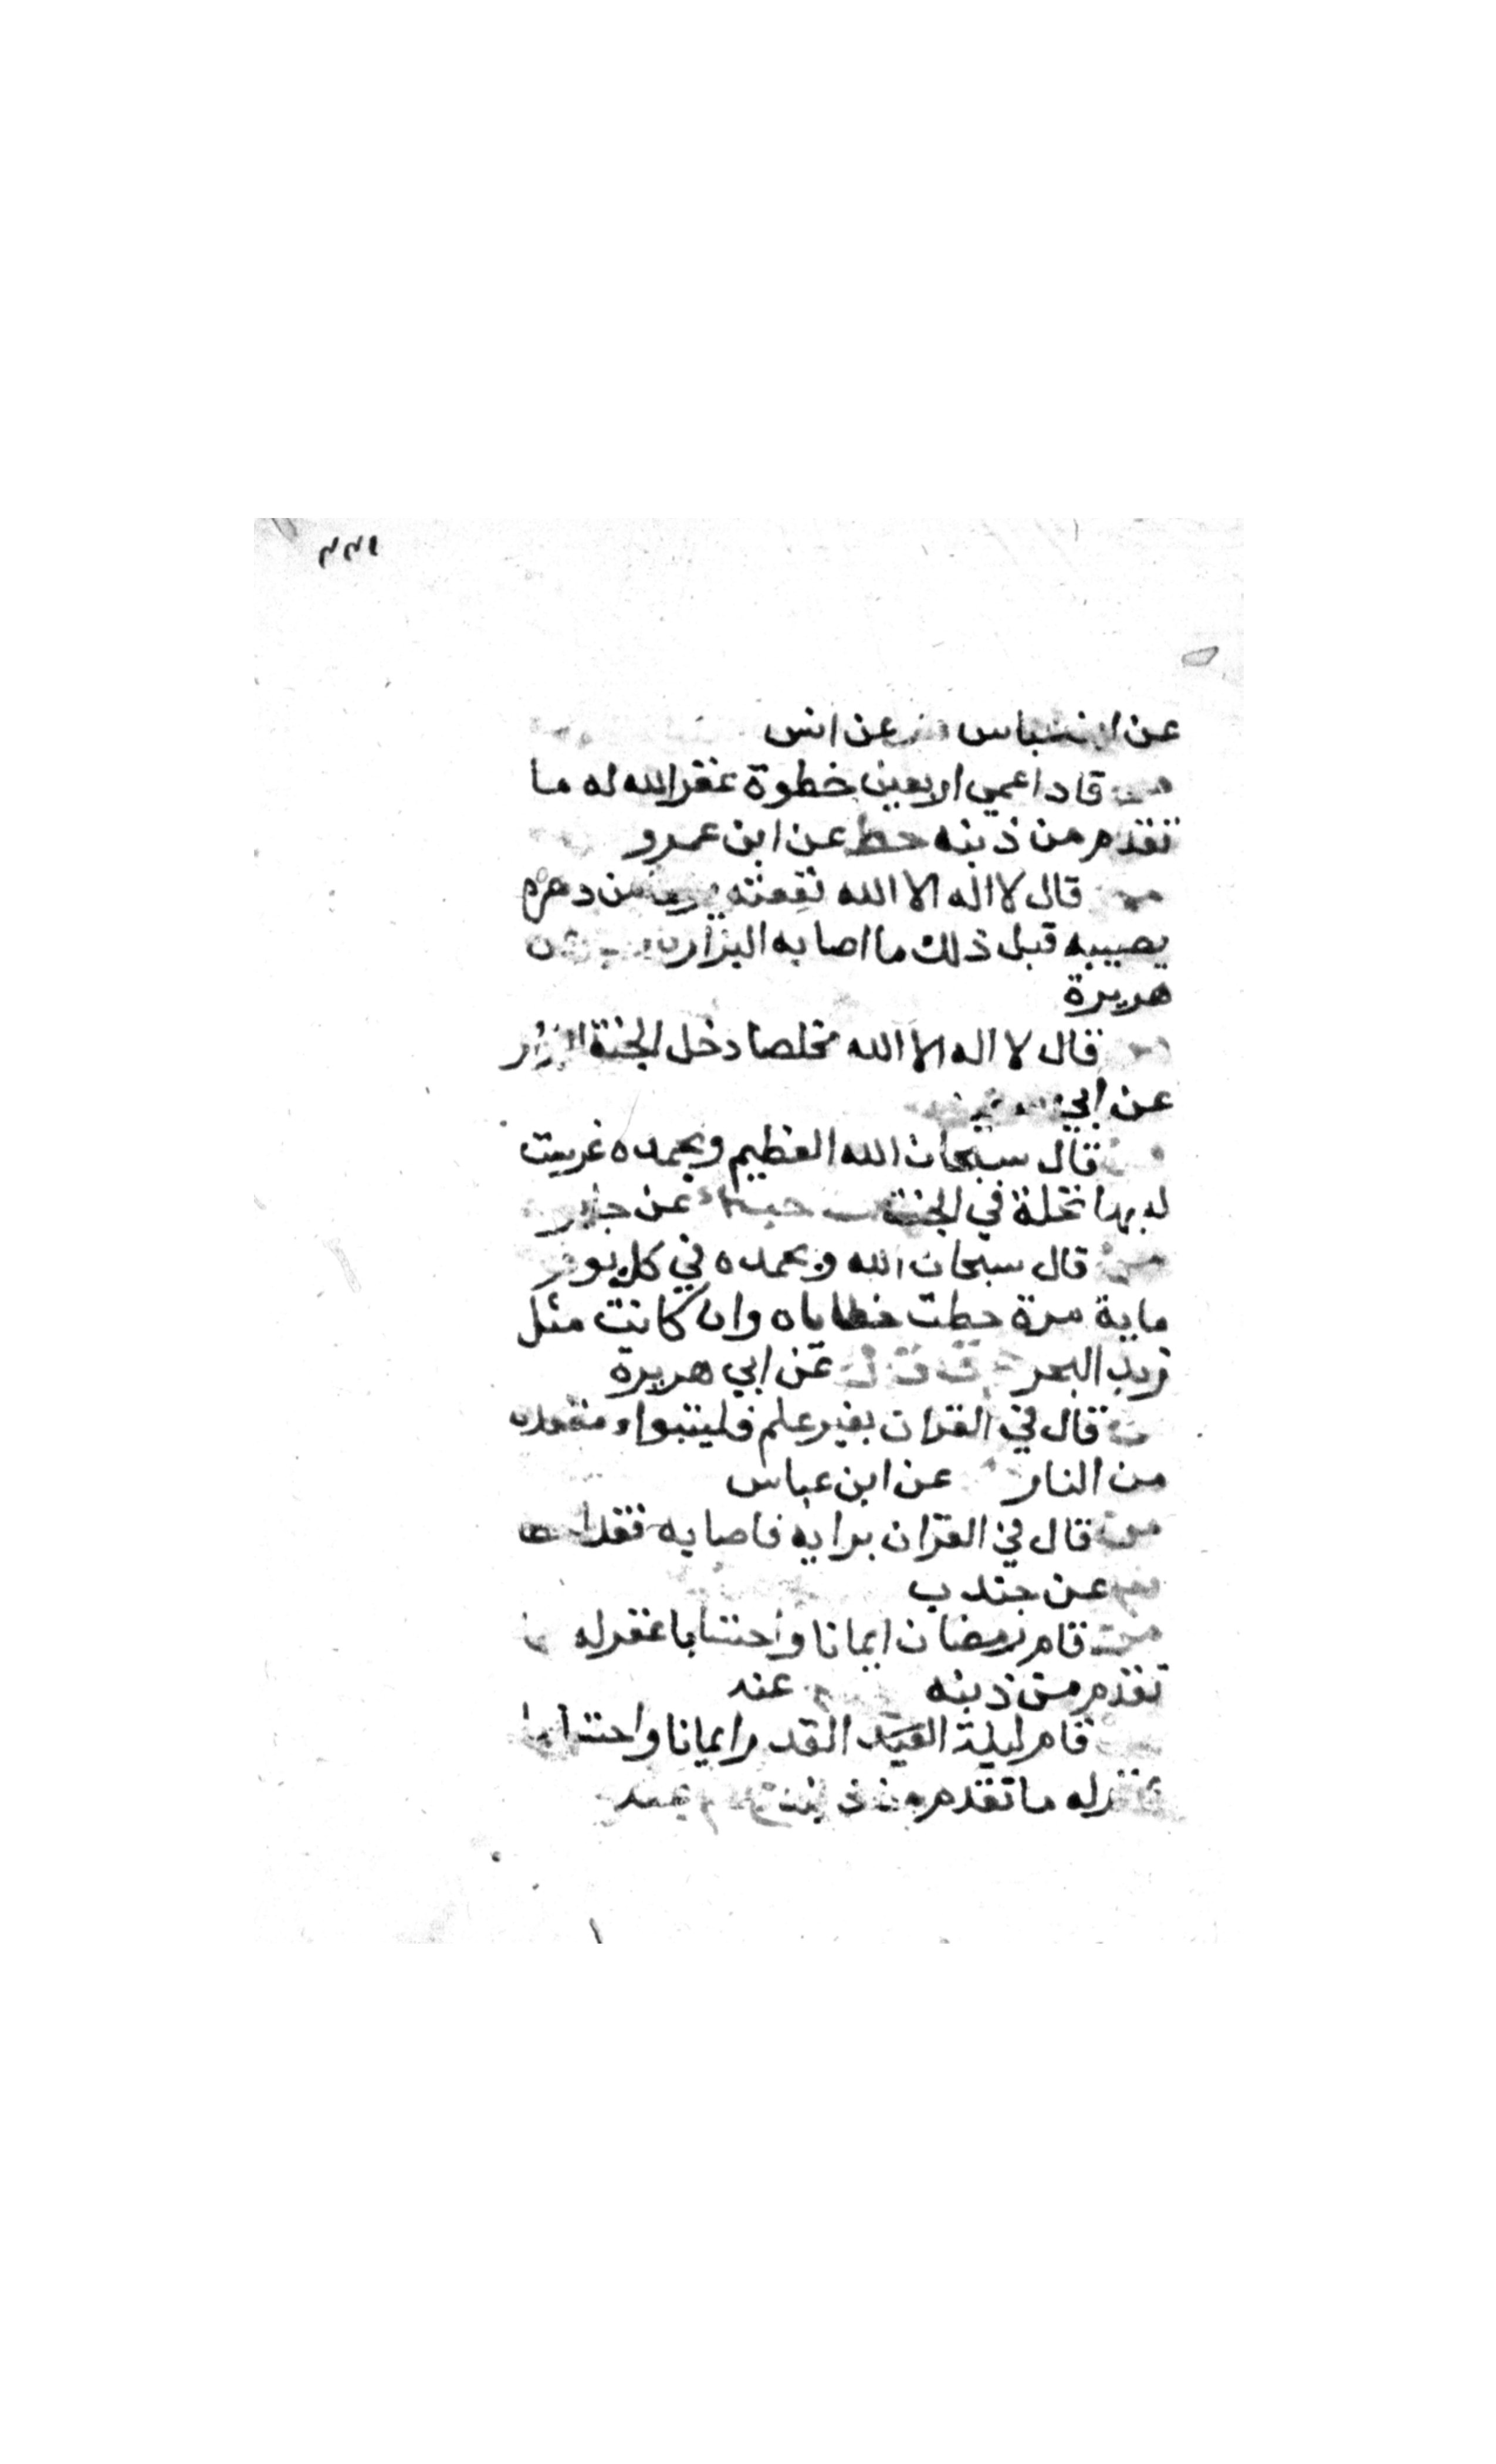 ١٢٢
عن ابن عباس عن انس
من قاد اعمي اربعين خطوة غفر الله له ما
تقدم من ذنبه خط عن ابن عمرو
من قال لا اله الا الله نفعته من دهره
يصيبه قبل ذلك ما اصابه البزار
هريرة
من قال لا اله الا الله مخلصا دخل الجنة البزار
عن ابي
من قال سبحان الله العظيم وبحمده غرست
له بها نخلة في الجنة ت حب ك عن جابر
من قال سبحان الله وبحمده في كل يوم
ماية مرة حطت خطاياه وان كانت مثل
زبد البحر ق ت عن ابي هريرة
من قال في القران بغير علم فليتبواء مقعده
من النار عن ابن عباس
من قال في القران برايه فاصابه فقد اخطا
عن جندب
من قام رمضان ايمانا واحتسابا غفر له ما
تقدم من ذنبه عنه
قام ليلة القيد القدر ايمانا واحتسابا
غفر له ما تقدم من ذنبه عنه